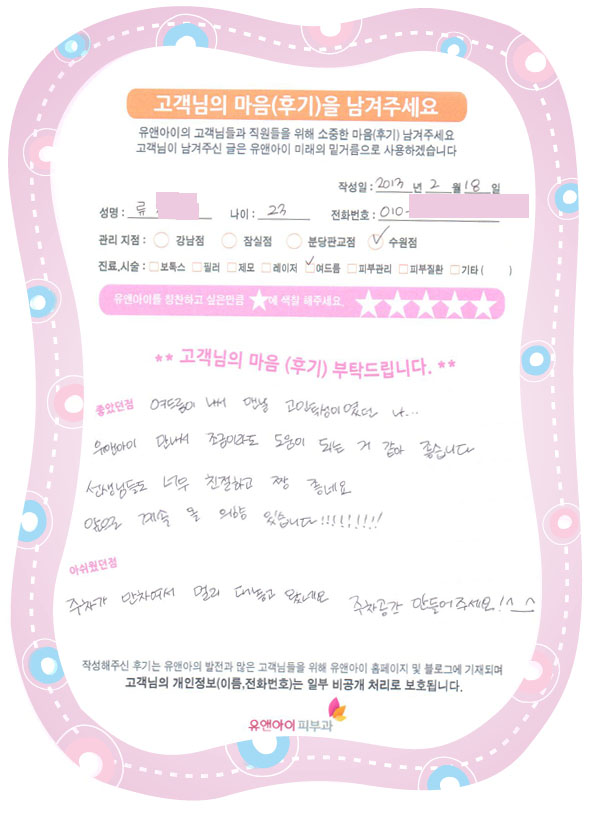 고객님의 마음(후기)을 남겨주세요
유앤아이의 고객님들과 직원들을 위해 소중한 마음(후기) 남겨주세요
고객님이 남겨주신 글은 유앤아이 미래의 밑거름으로 사용하겠습니다
작성일 : 2013 년 2 월 18 일
성명 : 류 나이 : 23 전화번호 : 010-
관리 지점 : 강남점 잠실점 분당판교점 수원점
진료,시술 : 보톡스 필러 제모 레이저 여드름 피부관리 피부질환 기타 ( )
유앤아이를 칭찬하고 싶은만큼 ★에 색칠 해주세요. ★★★★★
** 고객님의 마음 (후기) 부탁드립니다. **
좋았던점 여드름이 나서 맨날 고민투성이였던 나...
유앤아이 만나서 조금이라도 도움이 되는 거 같아 좋습니다
선생님들도 너무 친절하고 짱 좋네요
앞으로 계속 올 의향 있습니다!!!!!!!!!
아쉬웠던점
주차가 만차여서 멀리 대놓고 왔네요 주차공간 만들어주세요!^_^
작성해주신 후기는 유앤아의 발전과 많은 고객님들을 위해 유앤아이 홈페이지 및 블로그에 기재되며
고객님의 개인정보(이름,전화번호)는 일부 비공개 처리로 보호됩니다.
유앤아이피부과